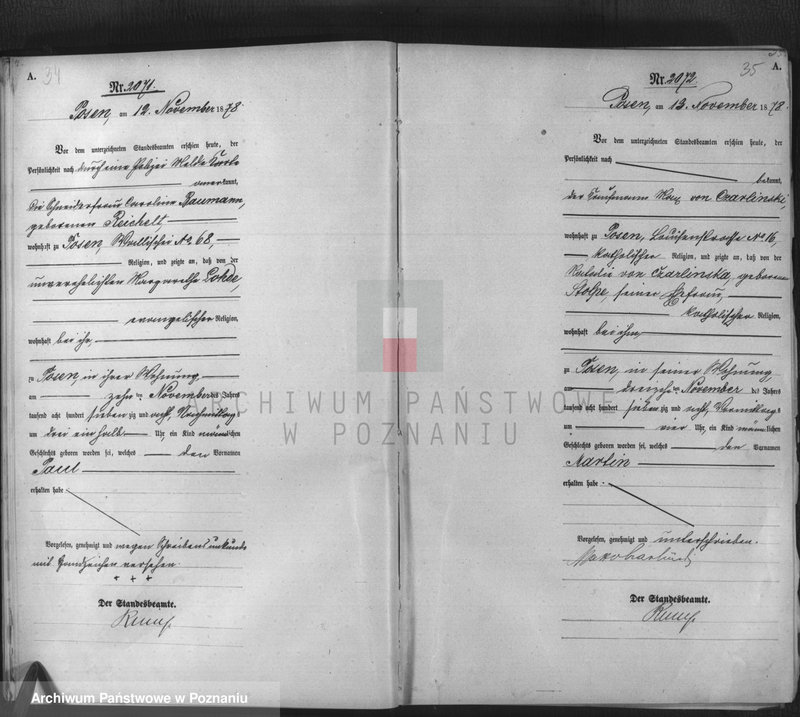 A. 34
Nr. 2071.
Posen, am 12. November 1878
Vor dem unterzeichneten Standesbeamten erschien heute, der
Persönlichkeit nach durch eine Polizei Melde Karte
anerkannt,
die Schneiderfrau Caroline Baumann,
geborenen Reichelt
wohnhaft zu Posen, Wallischei No 68,
Religion, und zeigte an, daß von der
unverehelichten Margarethe
evangelischer Religion,
wohnhaft bei ihr,
zu Posen, in ihrer Wohnung
am zehn ten November des Jahres
tausend acht hundert sieben zig und acht Nachmittags
um drei einhalb Uhr ein Kind männlichen
Geschlechts geboren worden sei, welches den Vornamen
Paul
erhalten habe
Vorgelesen, genehmigt und wegen Schreibensunkunde
mit Handzeichen versehen.
+ + +
Der Standesbeamte.
35 A.
Nr. 2072.
Posen, am 13. November 1878.
Vor dem unterzeichneten Standesbeamten erschien heute, der
Persönlichkeit nach
bekannt,
der Kaufmann Max von Czarlinski,
wohnhaft zu Posen, Louisenstrasse No 16,
katholischer Religion, und zeigte an, daß von der
von Czarlinska, geborenen
Stolpe, seiner Ehefrau,
katholischer Religion,
wohnhaft bei ihm,
zu Posen, in seiner Wohnung
am dreizehn ten November des Jahres
tausend acht hundert sieben zig und acht, Vormittags
um vier Uhr ein Kind männlichen
Geschlechts geboren worden sei, welches den Vornamen
Martin
erhalten habe
Vorgelesen, genehmigt und unterschrieben.
Der Standesbeamte.
ARCHIWUM PAŃSTWOWE
W POZNANIU
Archiwum Państwowe w Poznaniu